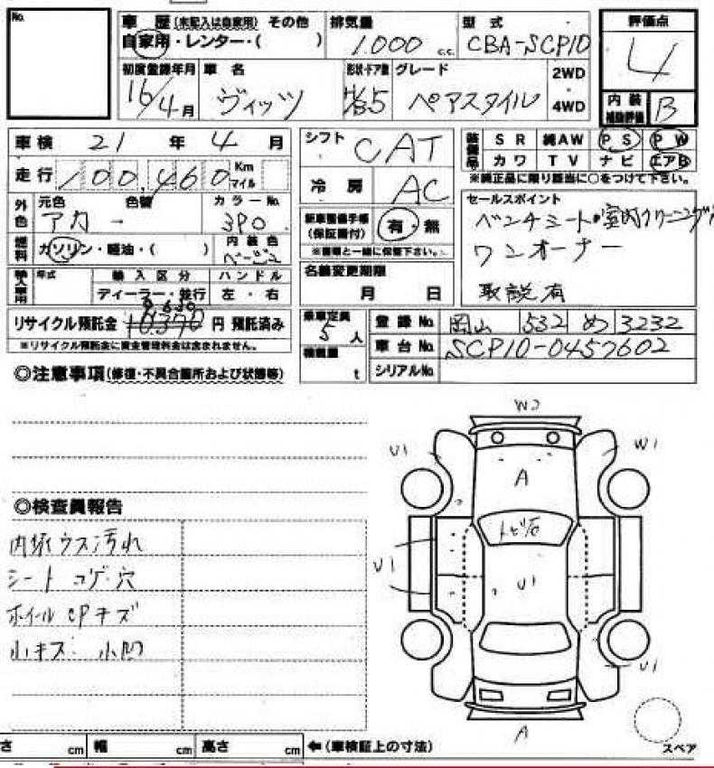 No.
車歴(未記入は自家用) その他 排気量 型式 評価点
自家用・レンター・( ) 1000 c.c. CBA-SCP10 4
初度登録年月 車名 形状・ドア数 グレード 2WD・4WD 内装補助評価 B
16/4月 ヴィッツ H/B5 ペアスタイル
車検 21年4月 シフト CAT 装備品 SR 純AW PS PW
カワ TV ナビ エアB
走行 100,460 Km マイル 冷房 AC ※純正品に限り該当に○をつけて下さい。
外色 元色 色替 カラーNo. セールスポイント
アカ ー 3P0 新車整備手帳(保証書付) 有・無 ベンチシート・室内クリーニング
燃料 ガソリン・軽油・( ) 内装色 ベージュ ※書類と一緒に保管下さい。 ワンオーナー
輸入車用 年式 輸入区分 ハンドル 名義変更期限
ディーラー・並行 左・右 月 日 取説有
リサイクル預託金 円 預託済み 乗車定員 5人 登録No. 岡山 532 め 3232
※リサイクル預託金に資金管理料金は含まれません。 積載量 t 車台No. SCP10-0457602
シリアルNo.
◎注意事項(修復・不具合箇所および状態等)
W2
U1 W1
A
◎検査員報告
トビ石
内張ウス汚れ
U1 U1
シート コゲ・穴
ホイールCPキズ
小キズ 小凹
U1
A
スペア
さ cm 幅 cm 高さ cm ←(車検証上の寸法)